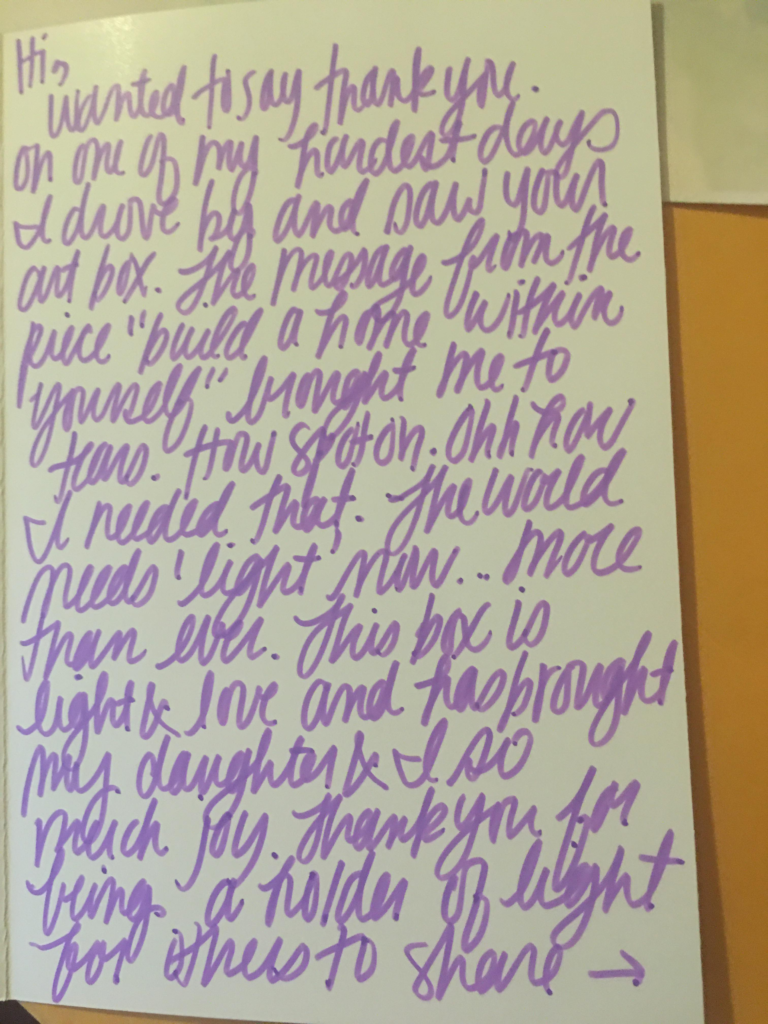 Hi,
wanted to say thank you.
on one of my hardest days
I drove by and saw your
art box. The message from the
piece "build a home within
yourself" brought me to
tears. How spot on. Ohh how
I needed that. The world
needs 'light' now... more
than ever. This box is
light & love and has brought
my daughter & I so
much joy. Thank you for
being a holder of light
for others to share →